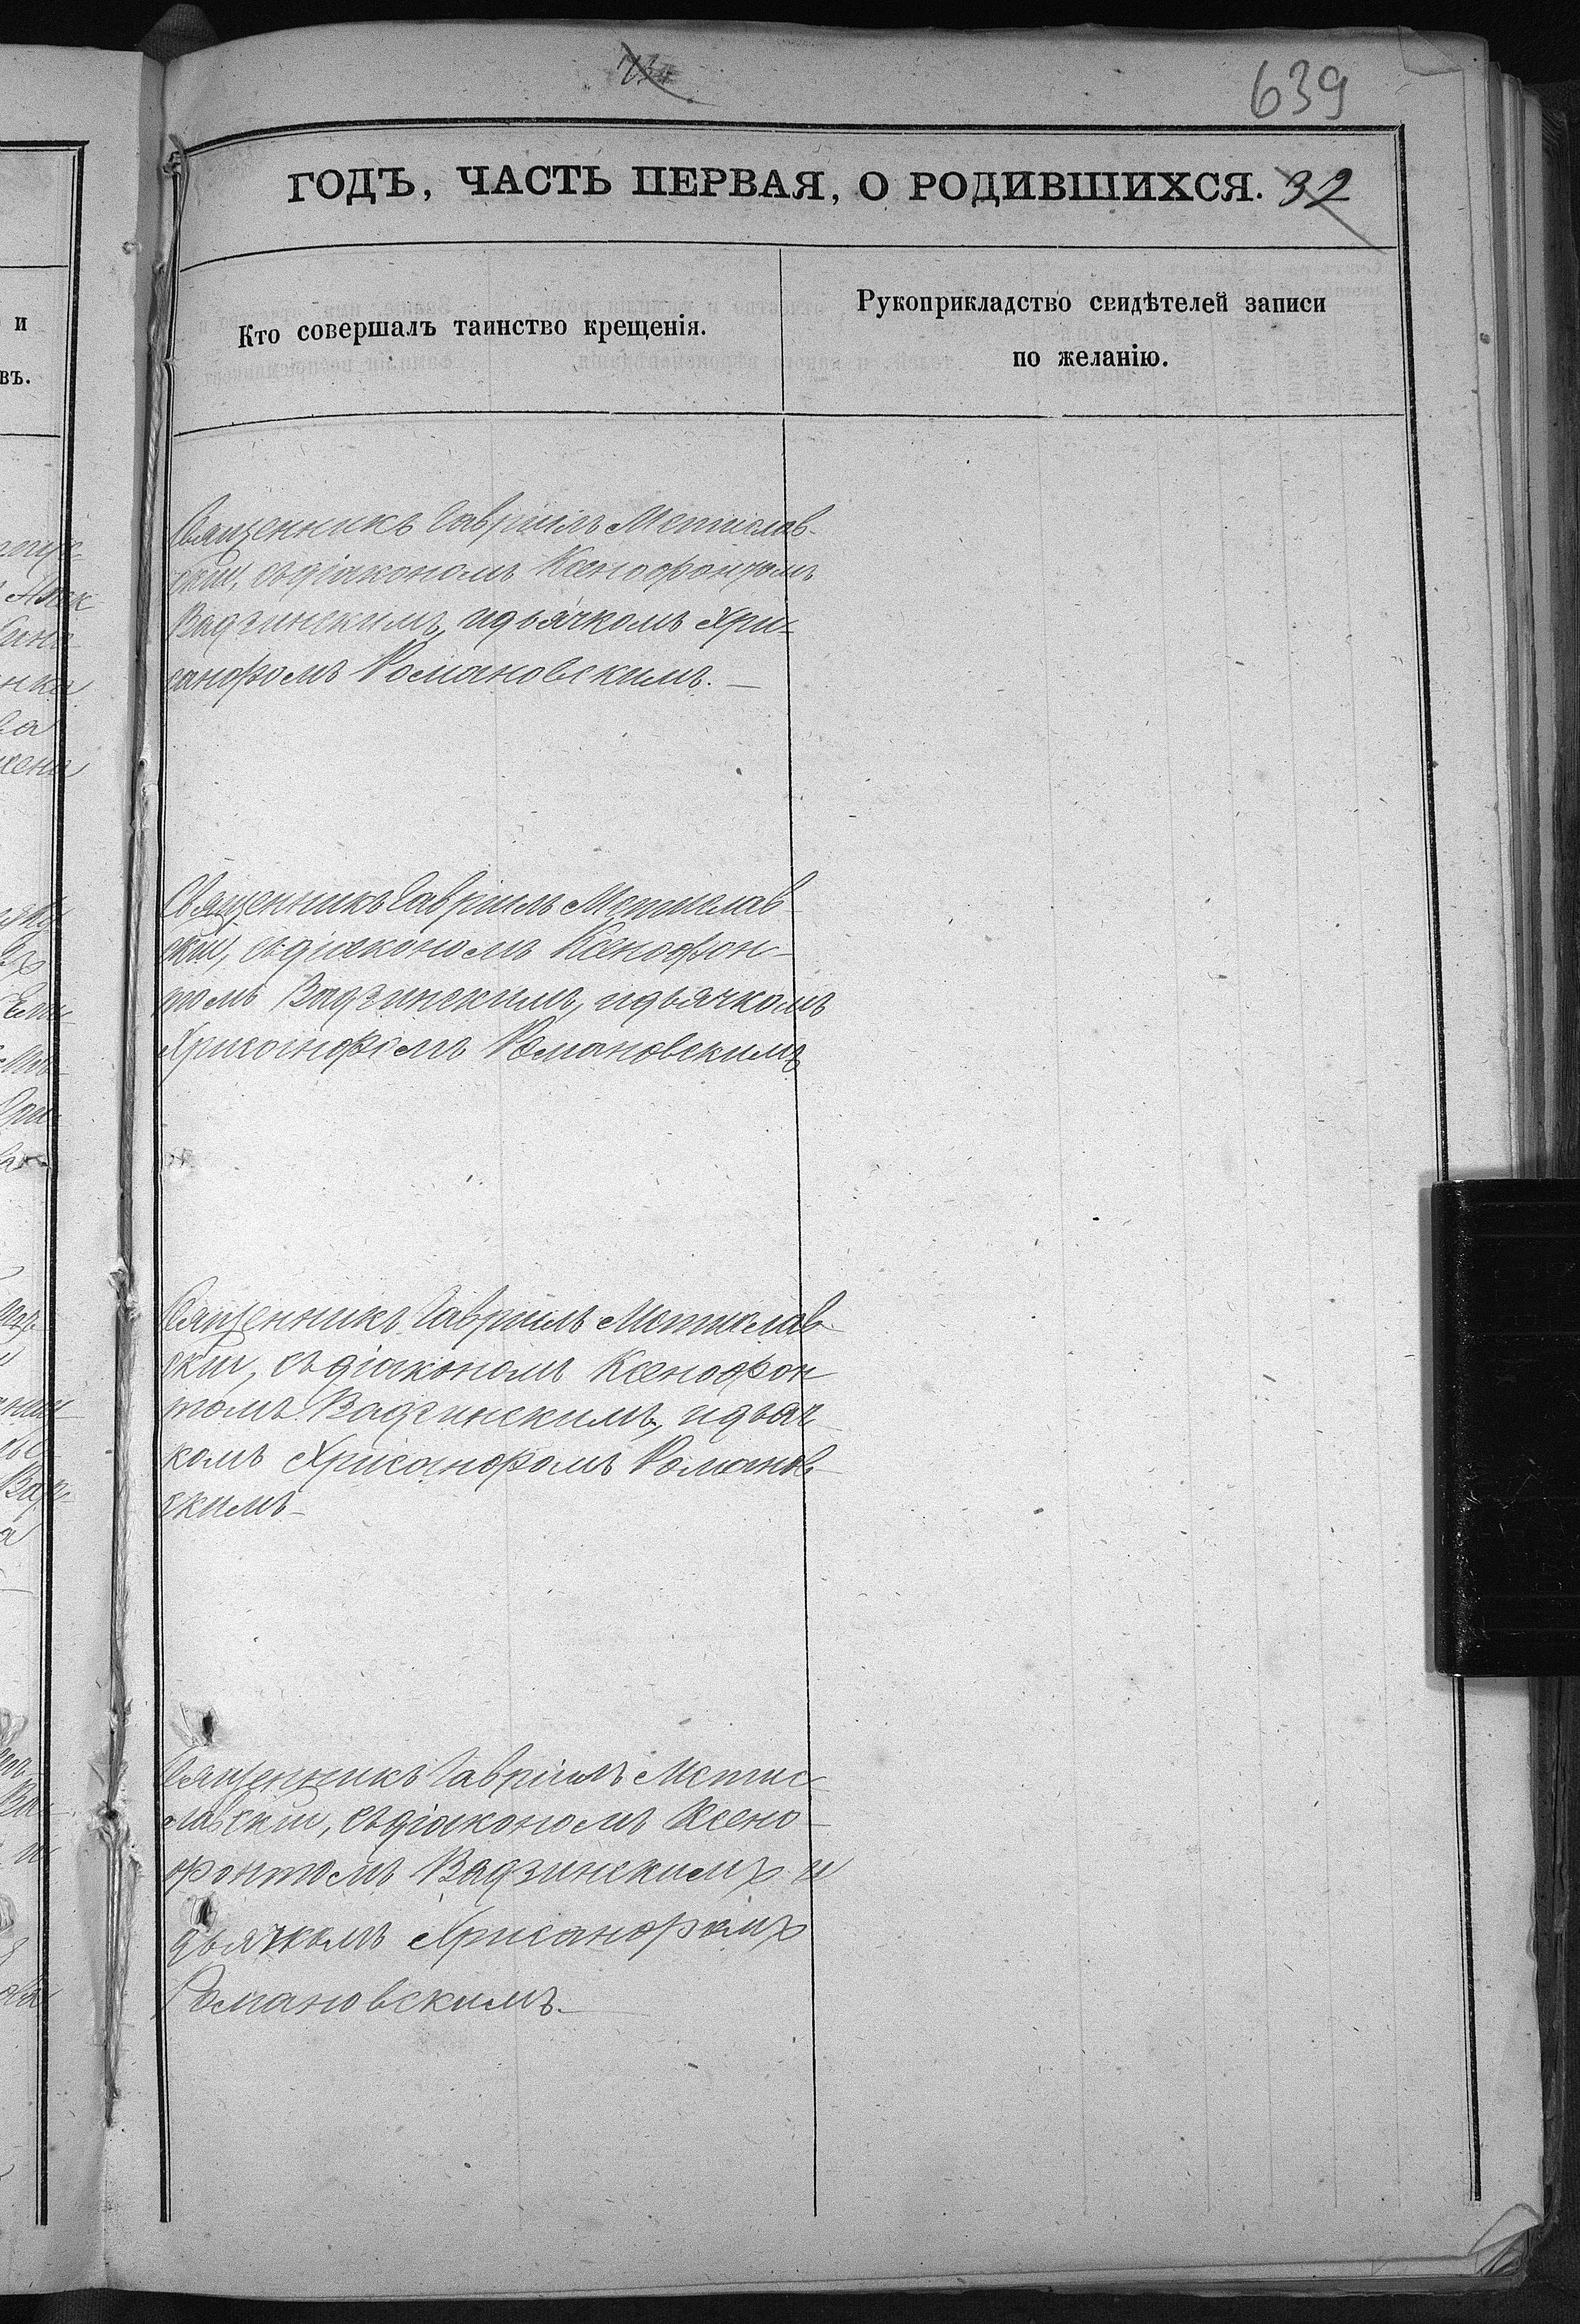 639
ГОДЪ, ЧАСТЬ ПЕРВАЯ, О РОДИВШИХСЯ. 32
Кто совершалъ таинство крещенія.
Рукоприкладство свидѣтелей записи
по желанію.
Священникъ Гавріилъ Мстислав-
скій, съ діакономъ Ксенофонтомъ
Вадзинскимъ, и дьячкомъ Хри-
санфомъ Романовскимъ.
Священникъ Гавріилъ Мстислав-
скій, съ діакономъ Ксенофон-
томъ Вадзинскимъ, и дьячкомъ
Хрисанфомъ Романовскимъ
Священникъ Гавріилъ Мстислав-
скій, съ діакономъ Ксенофон
томъ Вадзинскимъ, и дьяч-
комъ Хрисанфомъ Романов-
скимъ
Священникъ Гавріилъ Мстис-
лавскій, съ діакономъ Ксено-
фонтомъ Вадзинскимъ и
дьячкомъ Хрисанфомъ
Романовскимъ.